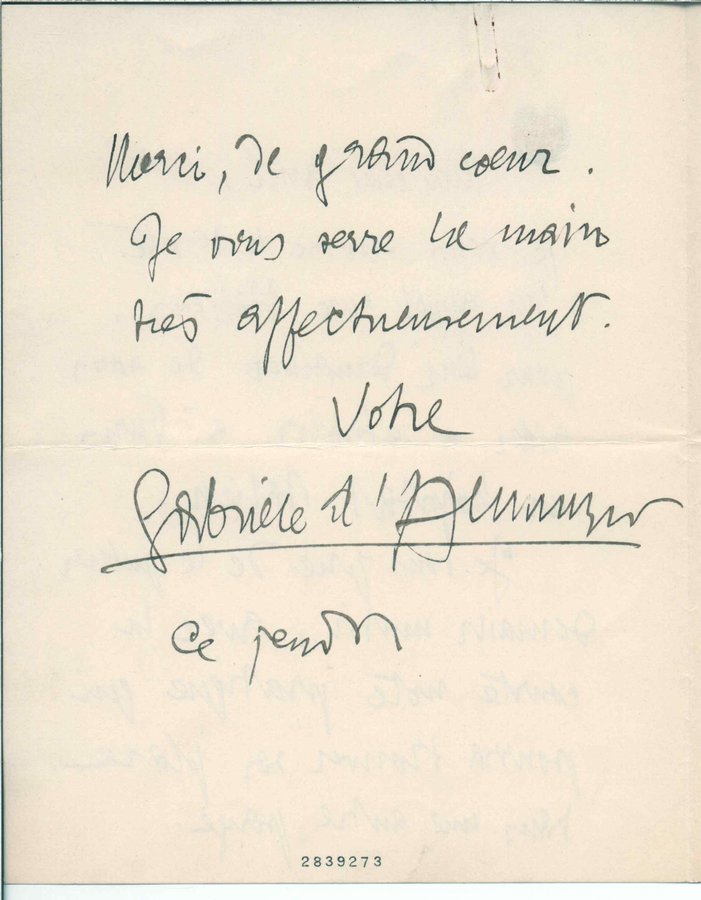 Merci, de grand cœur.
Je vous serre la main
très affectueusement.
Votre
Gabriele d'Annunzio
Ce jeudi
2839273